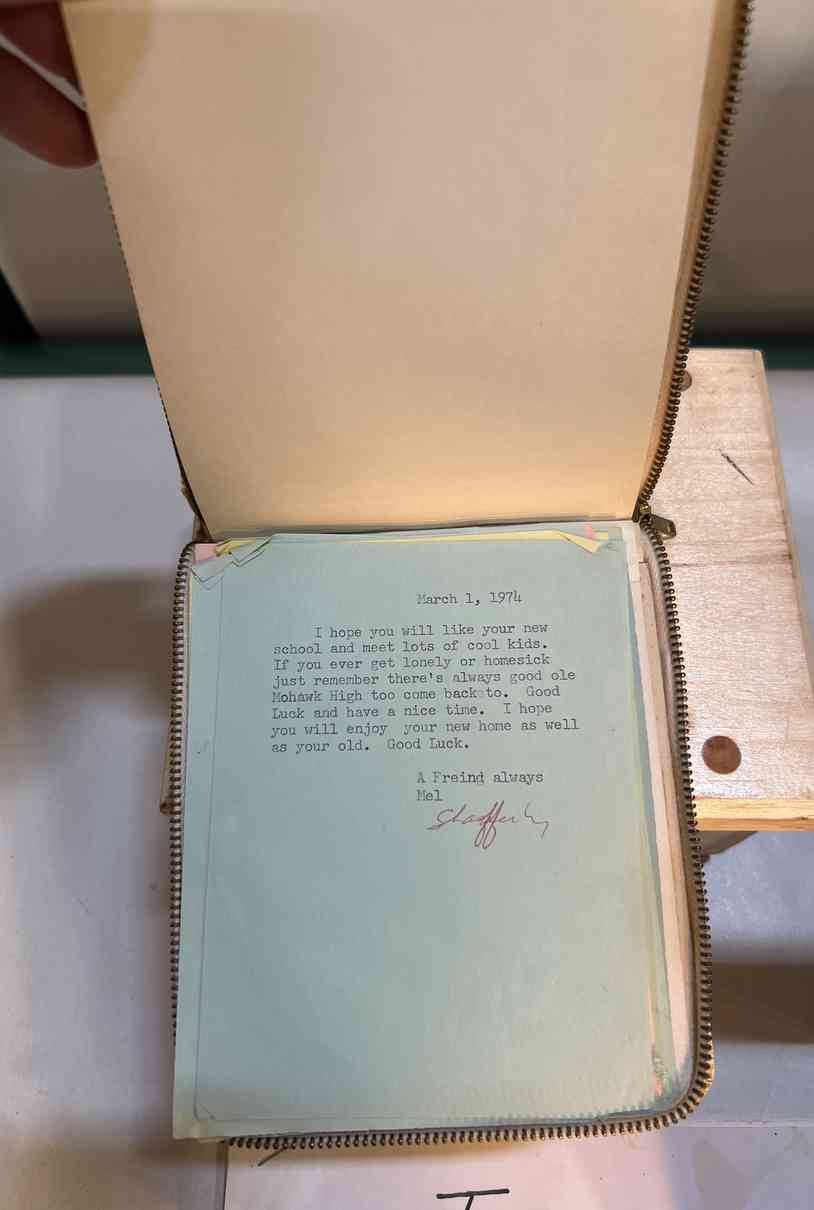 March 1, 1974
I hope you will like your new
school and meet lots of cool kids.
If you ever get lonely or homesick
just remember there's always good ole
Mohawk High too come back to.  Good
Luck and have a nice time.  I hope
you will enjoy  your new home as well
as your old.  Good Luck.
A Freind always
Mel